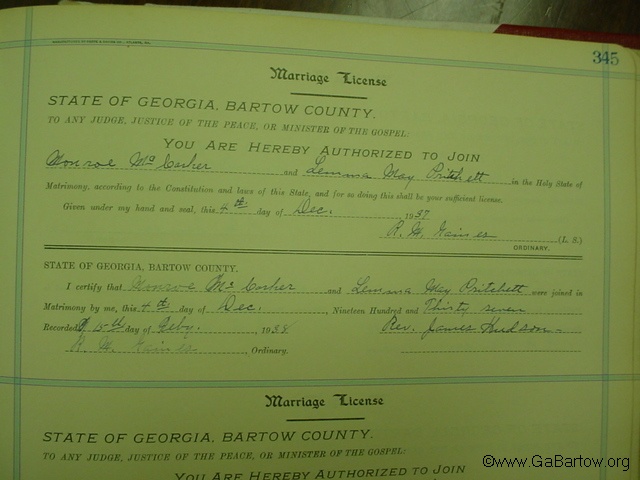 345
Marriage License
STATE OF GEORGIA, BARTOW COUNTY.
TO ANY JUDGE, JUSTICE OF THE PEACE, OR MINISTER OF THE GOSPEL:
YOU ARE HEREBY AUTHORIZED TO JOIN
Monroe Mc Cosher and Lemma May Pritchett in the Holy State of
Matrimony, according to the Constitution and laws of this State, and for so doing this shall be your sufficient license.
Given under my hand and seal, this 4th day of Dec. 1937
R. M. Gaines (L. S.)
ORDINARY.
STATE OF GEORGIA, BARTOW COUNTY.
I certify that Monroe Mc Cosher and Lemma May Pritchett were joined in
Matrimony by me, this 4th day of Dec. Nineteen Hundred and Thirty seven
Recorded 15th day of Feby. 1938 Rev. James Hudson
R. M. Gaines Ordinary.
Marriage License
STATE OF GEORGIA, BARTOW COUNTY.
TO ANY JUDGE, JUSTICE OF THE PEACE, OR MINISTER OF THE GOSPEL:
YOU ARE HEREBY AUTHORIZED TO JOIN
©www.GaBartow.org